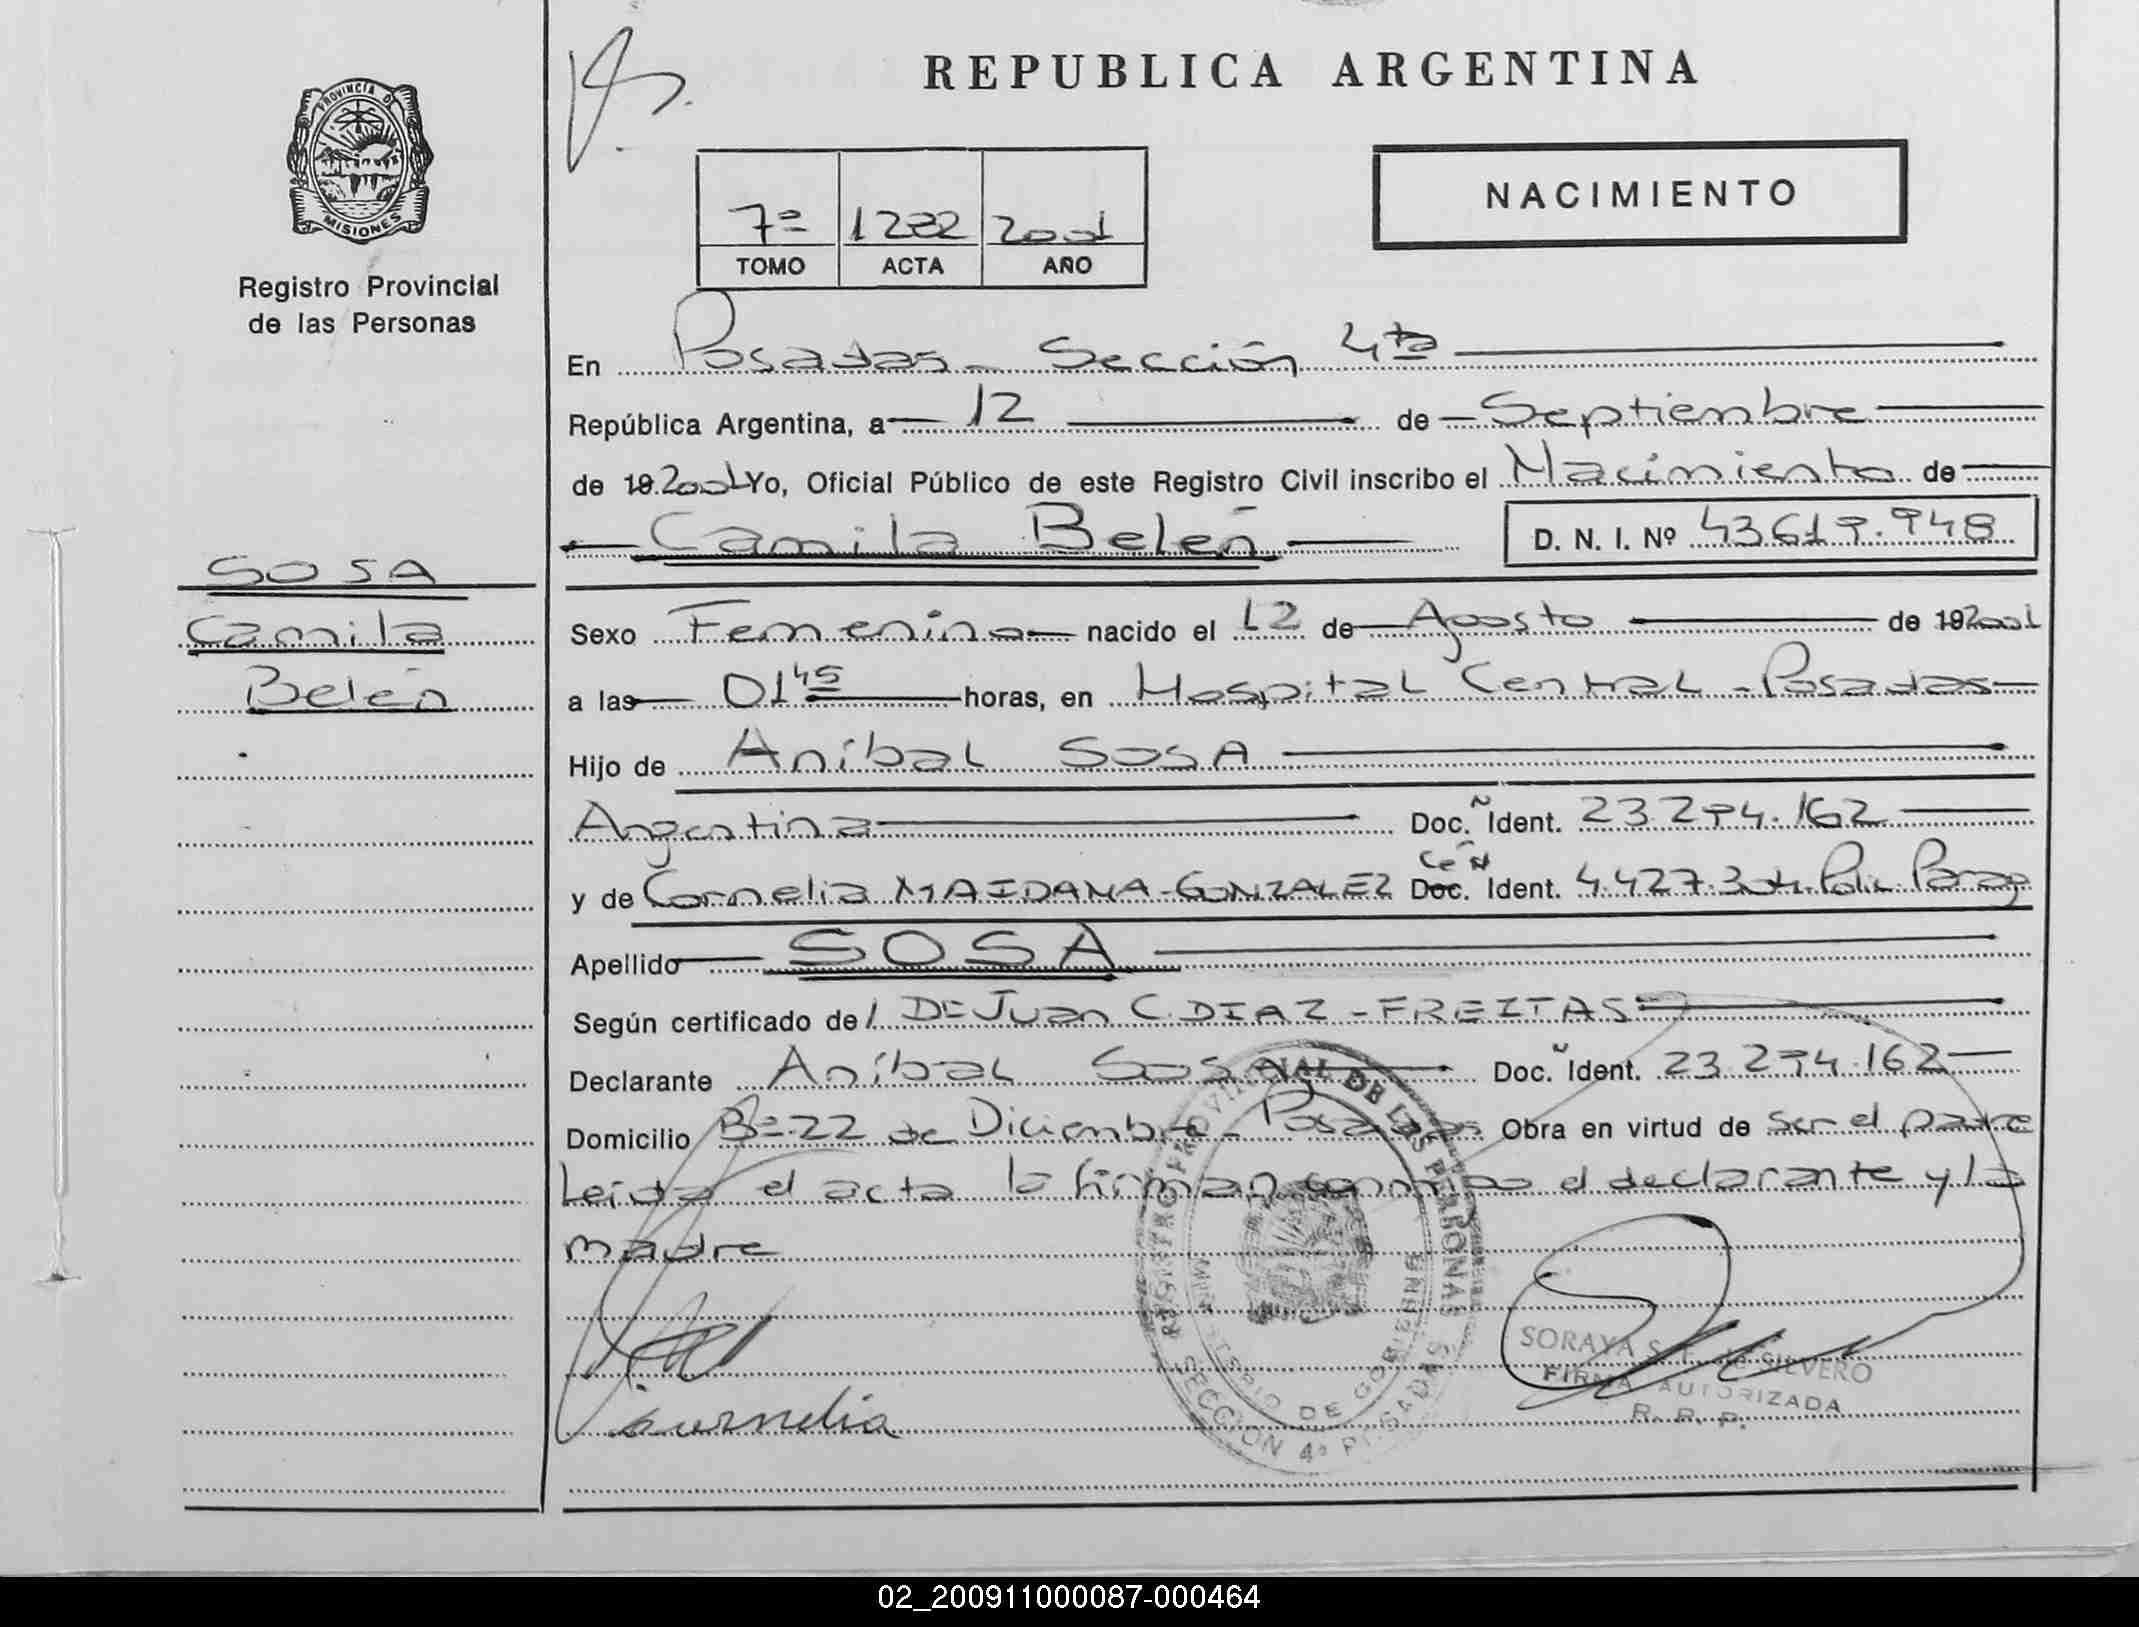 REPUBLICA ARGENTINA
PROVINCIA DE
MISIONES
Registro Provincial
de las Personas
7º 1282 2001
TOMO ACTA AÑO
NACIMIENTO
En Posadas - Sección 4ta
República Argentina, a 12 de Septiembre
de 19 2001 Yo, Oficial Público de este Registro Civil inscribo el Nacimiento de
Camila Belén D. N. I. Nº 43.619.948
SOSA
Camila
Belén
Sexo Femenino nacido el 12 de Agosto de 19 2001
a las 01 45 horas, en Hospital Central - Posadas
Hijo de Aníbal SOSA
Argentina Doc. Ident. 23.274.162
y de Cornelia MAIDANA-GONZALEZ Doc. Ident. 4.427. Poli. Parag
Apellido SOSA
Según certificado de/ Dº Juan C. DIAZ - FREITAS
Declarante Aníbal Sosa Doc. Ident. 23.274.162
Domicilio Bº 22 de Diciembre - Posadas Obra en virtud de ser el padre
Leída el acta la firman conmigo el declarante y la
madre
REGISTRO PROVINCIAL DE LAS PERSONAS
MINISTERIO DE GOBIERNO
SECCION 4ª POSADAS
Cornelia
SORAYA S. de SILVERO
FIRMA AUTORIZADA
R. P. P.
02_200911000087-000464